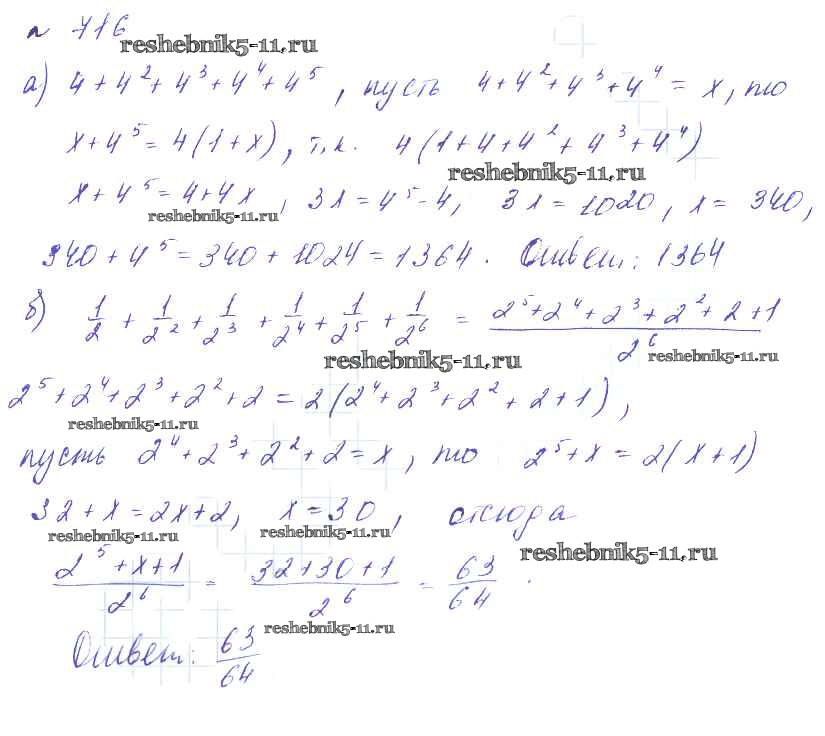 № 716
reshebnik5-11.ru
а) 4 + 4² + 4³ + 4⁴ + 4⁵, пусть 4 + 4² + 4³ + 4⁴ = x, то
x + 4⁵ = 4(1 + x), т.к. 4(1 + 4 + 4² + 4³ + 4⁴)
reshebnik5-11.ru
x + 4⁵ = 4 + 4x, 3x = 4⁵ - 4, 3x = 1020, x = 340,
reshebnik5-11.ru
340 + 4⁵ = 340 + 1024 = 1364. Ответ: 1364
б) 1/2 + 1/2² + 1/2³ + 1/2⁴ + 1/2⁵ + 1/2⁶ = (2⁵ + 2⁴ + 2³ + 2² + 2 + 1)/2⁶
reshebnik5-11.ru
reshebnik5-11.ru
2⁵ + 2⁴ + 2³ + 2² + 2 = 2(2⁴ + 2³ + 2² + 2 + 1),
reshebnik5-11.ru
пусть 2⁴ + 2³ + 2² + 2 = x, то 2⁵ + x = 2(x + 1)
32 + x = 2x + 2, x = 30, отсюда
reshebnik5-11.ru reshebnik5-11.ru
reshebnik5-11.ru
(2⁵ + x + 1)/2⁶ = (32 + 30 + 1)/2⁶ = 63/64.
reshebnik5-11.ru
Ответ: 63/64